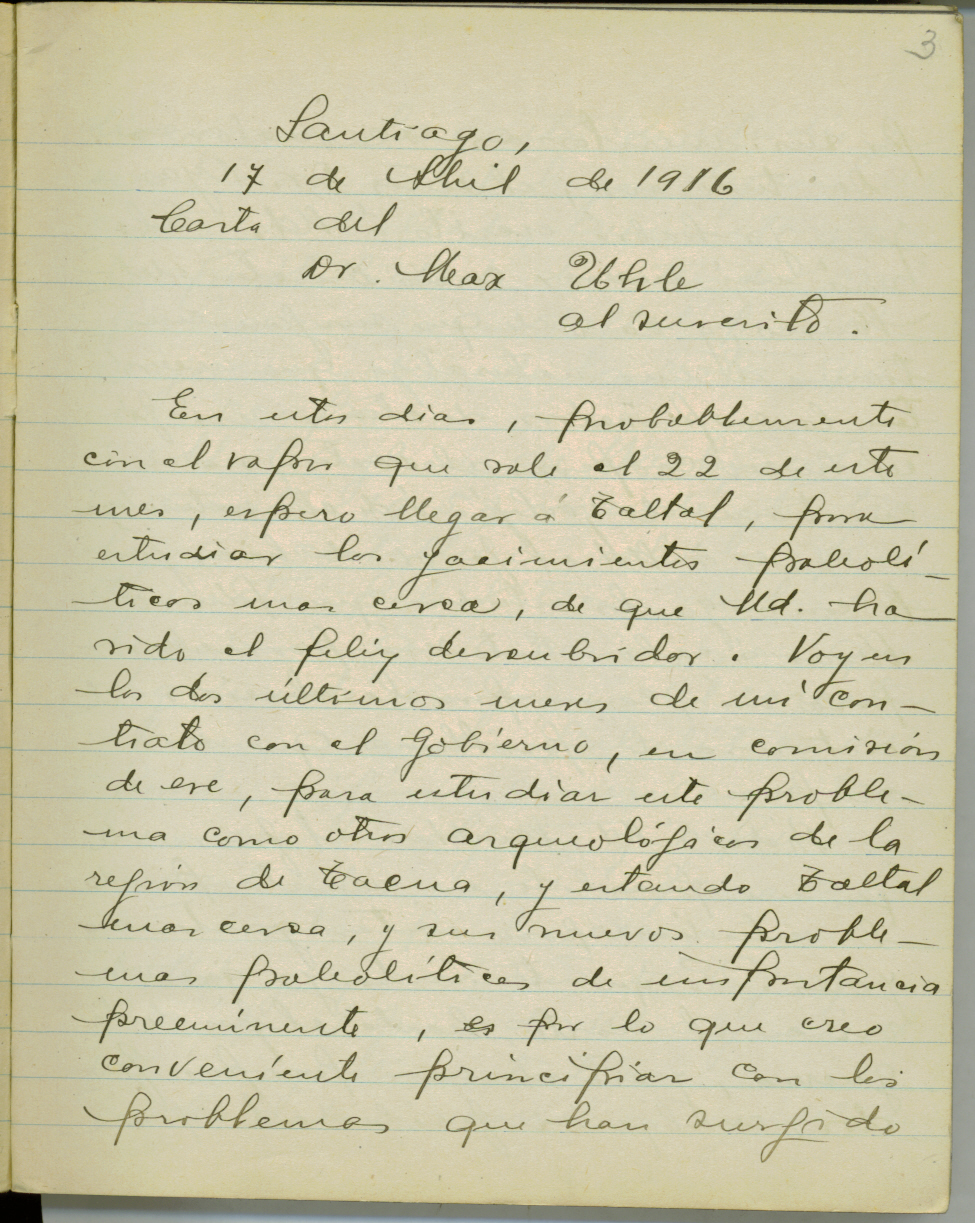 3
Santiago,
17 de Abril de 1916
Carta del
Dr. Max Uhle
al suscrito.
En estos dias, probablemente
con el vapor que sale el 22 de este
mes, espero llegar á Taltal, para
estudiar los yacimientos paleolí-
ticos mas cerca, de que Ud. ha
sido el feliz descubridor. Voy en
los dos últimos meses de mi con-
trato con el Gobierno, en comisión
de ese, para estudiar este proble-
ma como otros arqueológicos de la
región de Tacna, y estando Taltal
mas cerca, y sus nuevos proble-
mas paleolíticos de importancia
preeminente, es por lo que creo
conveniente principiar con los
problemas que han surgido